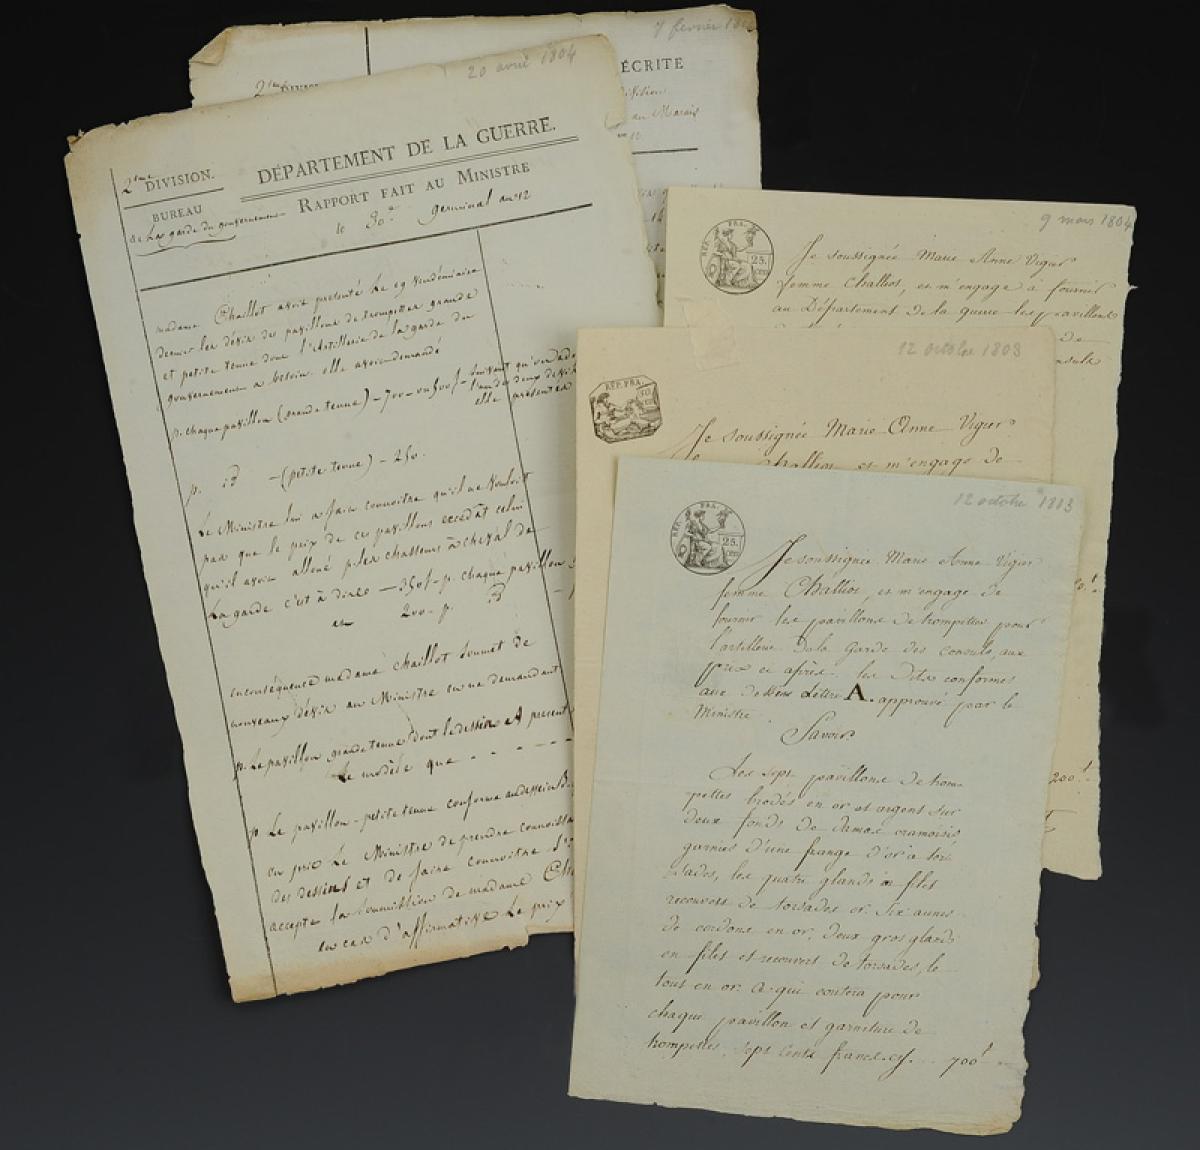 7 février
2eme DIVISION
ÉCRITE
au Marais
20 avril 1804
2eme DIVISION.
DÉPARTEMENT DE LA GUERRE.
BUREAU
de la garde du gouvernement
RAPPORT FAIT AU MINISTRE
le 30e germinal an 12
madame Chaillot avoit presenté le 29 vendémiaire
dernier les dévis des pavillons de trompettes grande
et petite tenue dont l'Artillerie de la garde du
gouvernement a besoin. elle avoit demandé
p. chaque pavillon (grande tenue) - 700 - ou 500f - suivant qu'on ado
l'un des deux dessins
elle présentea
p. id - (petite tenue) - 250.
Le Ministre lui a fait connoitre qu'il ne vouloit
pas que le prix de ces pavillons excedât celui
qu'il avoit alloué p. les chasseurs à cheval de
La garde c'est à dire - 350f - p. chaque pavillon
et 200 - p. id
enconséquence madame Chaillot soumet de
nouveaux dévis au Ministre en ne demandant
p. Le pavillon grande tenue dont le dessin A présent
Le modèle que - - - -
p. Le pavillon - petite tenue conforme au dessin B
on prie Le Ministre de prendre connoissa
des dessins et de faire connoitre s'il
accepte la soumission de madame Cha
en cas d'affirmative Le prix
9 mars 1804
RÉP. FRA.
25.
CEN
Je soussignée Marie Anne Vigier
femme Challiot, et m'engage à fournir
au Département de la guerre les pavillons
de
consuls
200f
12 octobre 1803
RÉP. FRA.
Je soussignée Marie Anne Vigier
Challiot et m'engage de
12 octobre 1803
RÉP. FRA.
25.
CEN
Je soussignée Marie Anne Vigier
femme Challiot, et m'engage de
fournir les pavillons de trompettes pour
l'artillerie de la Garde des consuls, aux
prix ci après. les dits conformes
aux dessins Lettre A. approuvé par le
Ministre.
Savoir
Les sept pavillons de trom
pettes brodés en or et argent sur
deux fonds de damas cramoisis
garnies d'une frange d'or à tor
sades, les quatre glands en filets
recouvert de torsades or. six aunes
de cordons en or, deux gros glands
en filets et recouvert de torsades, le
tout en or. Ce qui coutera pour
chaque pavillon et garniture de
trompettes, sept cents francs cy... 700f